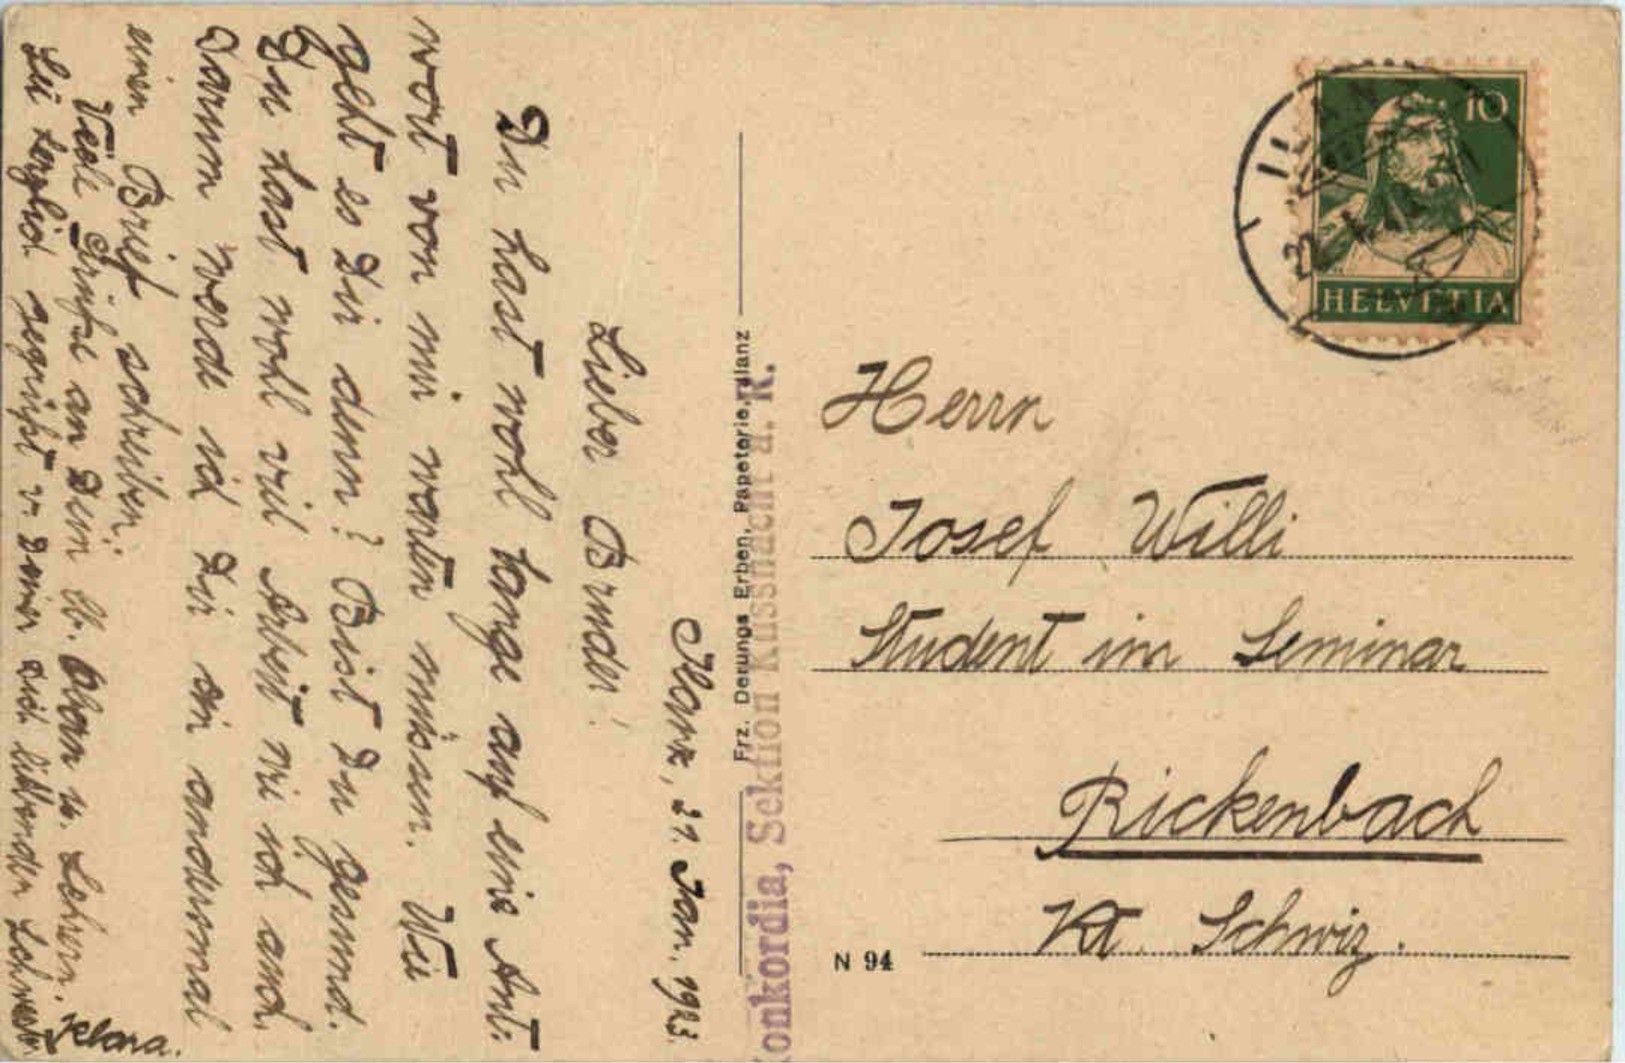 Ilanz, 21. Jan. 1923.
Lieber Bruder!
Du hast wohl lange auf eine Ant-
wort von mir warten müssen. Wie
geht es Dir denn? Bist Du gesund.
Du hast wohl viel Arbeit wie ich auch.
Darum werde ich Dir ein andermal
einen Brief schreiben.
Viele Grüße an Dein lb. Obern u. Lehrern.
Sei herzlich gegrüßt v. Deiner dich liebenden Schwester
Klara.
Frz. Derungs Erben, Papeterie, Ilanz
Konkordia, Sektion Küssnacht a. R.
ILANZ
10
HELVETIA
Herrn
Josef Willi
Student im Seminar
Rickenbach
Kt. Schwiz.
N 94